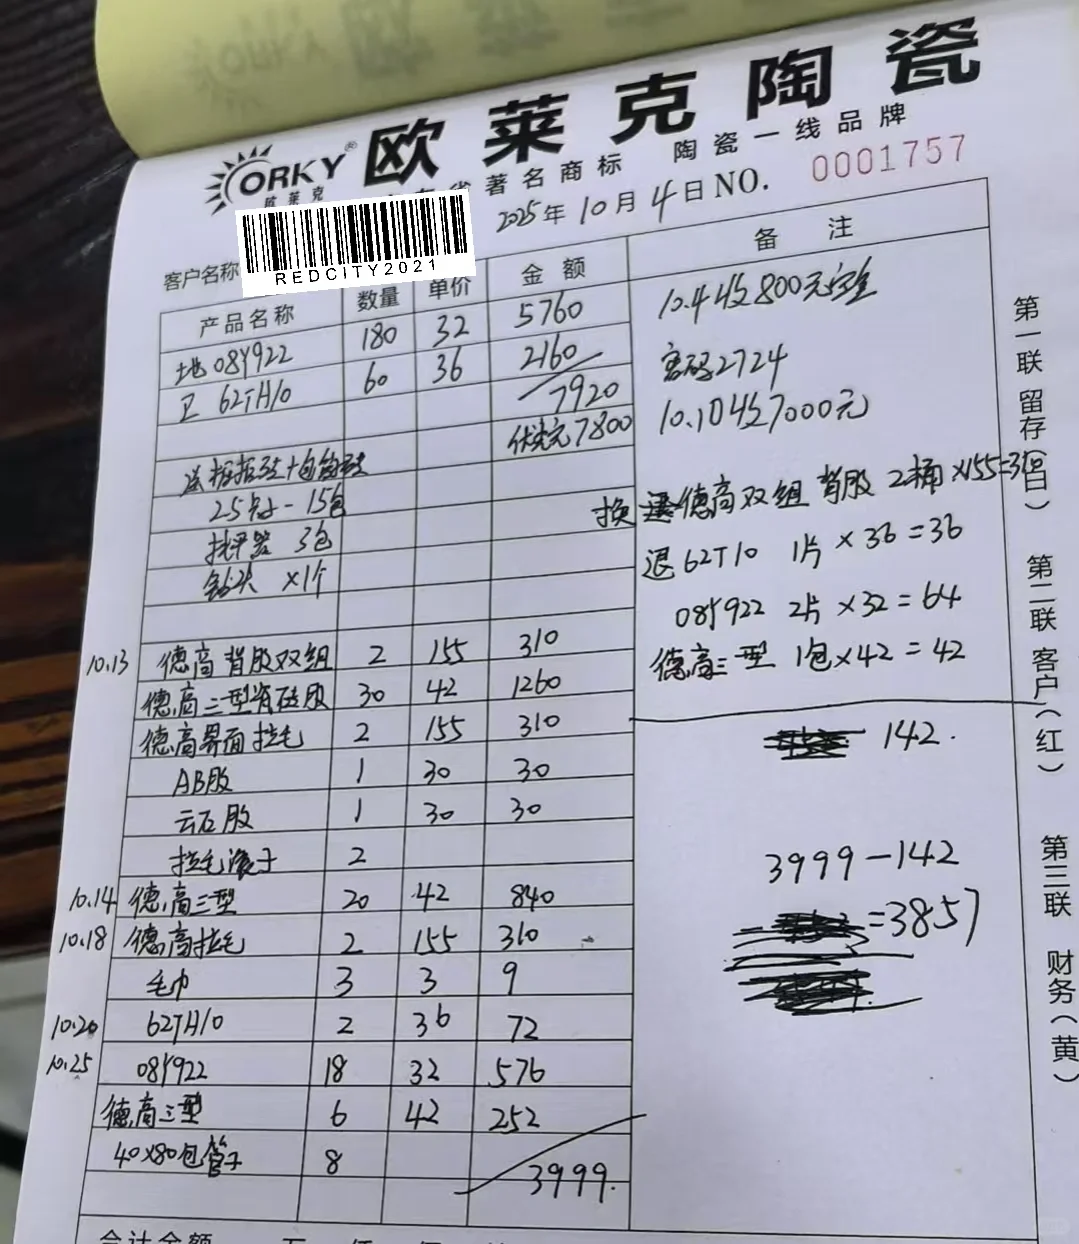 ORKY®
欧莱克陶瓷
欧莱克
著名商标 陶瓷一线品牌
2025年10月4日 NO. 0001757
客户名称
REDCITY2021
产品名称 数量 单价 金额 备注
地 08Y922 180 32 5760
卫 62TH10 60 36 2160
7920
优惠完7800
10.4收800元定金
客码2724
10.10收7000元
25 - 15包
找平器 3包
钻头 ×1个
换 德高双组背胶 2桶×155=310
退62T10 1片×36=36
08Y922 2片×32=64
德高三型 1包×42=42
142.
3999-142
=3857
10.13 德高背胶双组 2 155 310
德高三型瓷砖胶 30 42 1260
德高界面拉毛 2 155 310
AB胶 1 30 30
云石胶 1 30 30
拉毛滚子 2
10.14 德高三型 20 42 840
10.18 德高拉毛 2 155 310
毛巾 3 3 9
10.20 62TH10 2 36 72
10.25 08Y922 18 32 576
德高三型 6 42 252
40×80包管子 8
3999.
合计金额 万 仟 佰
第一联 留存(白)
第二联 客户(红)
第三联 财务(黄)